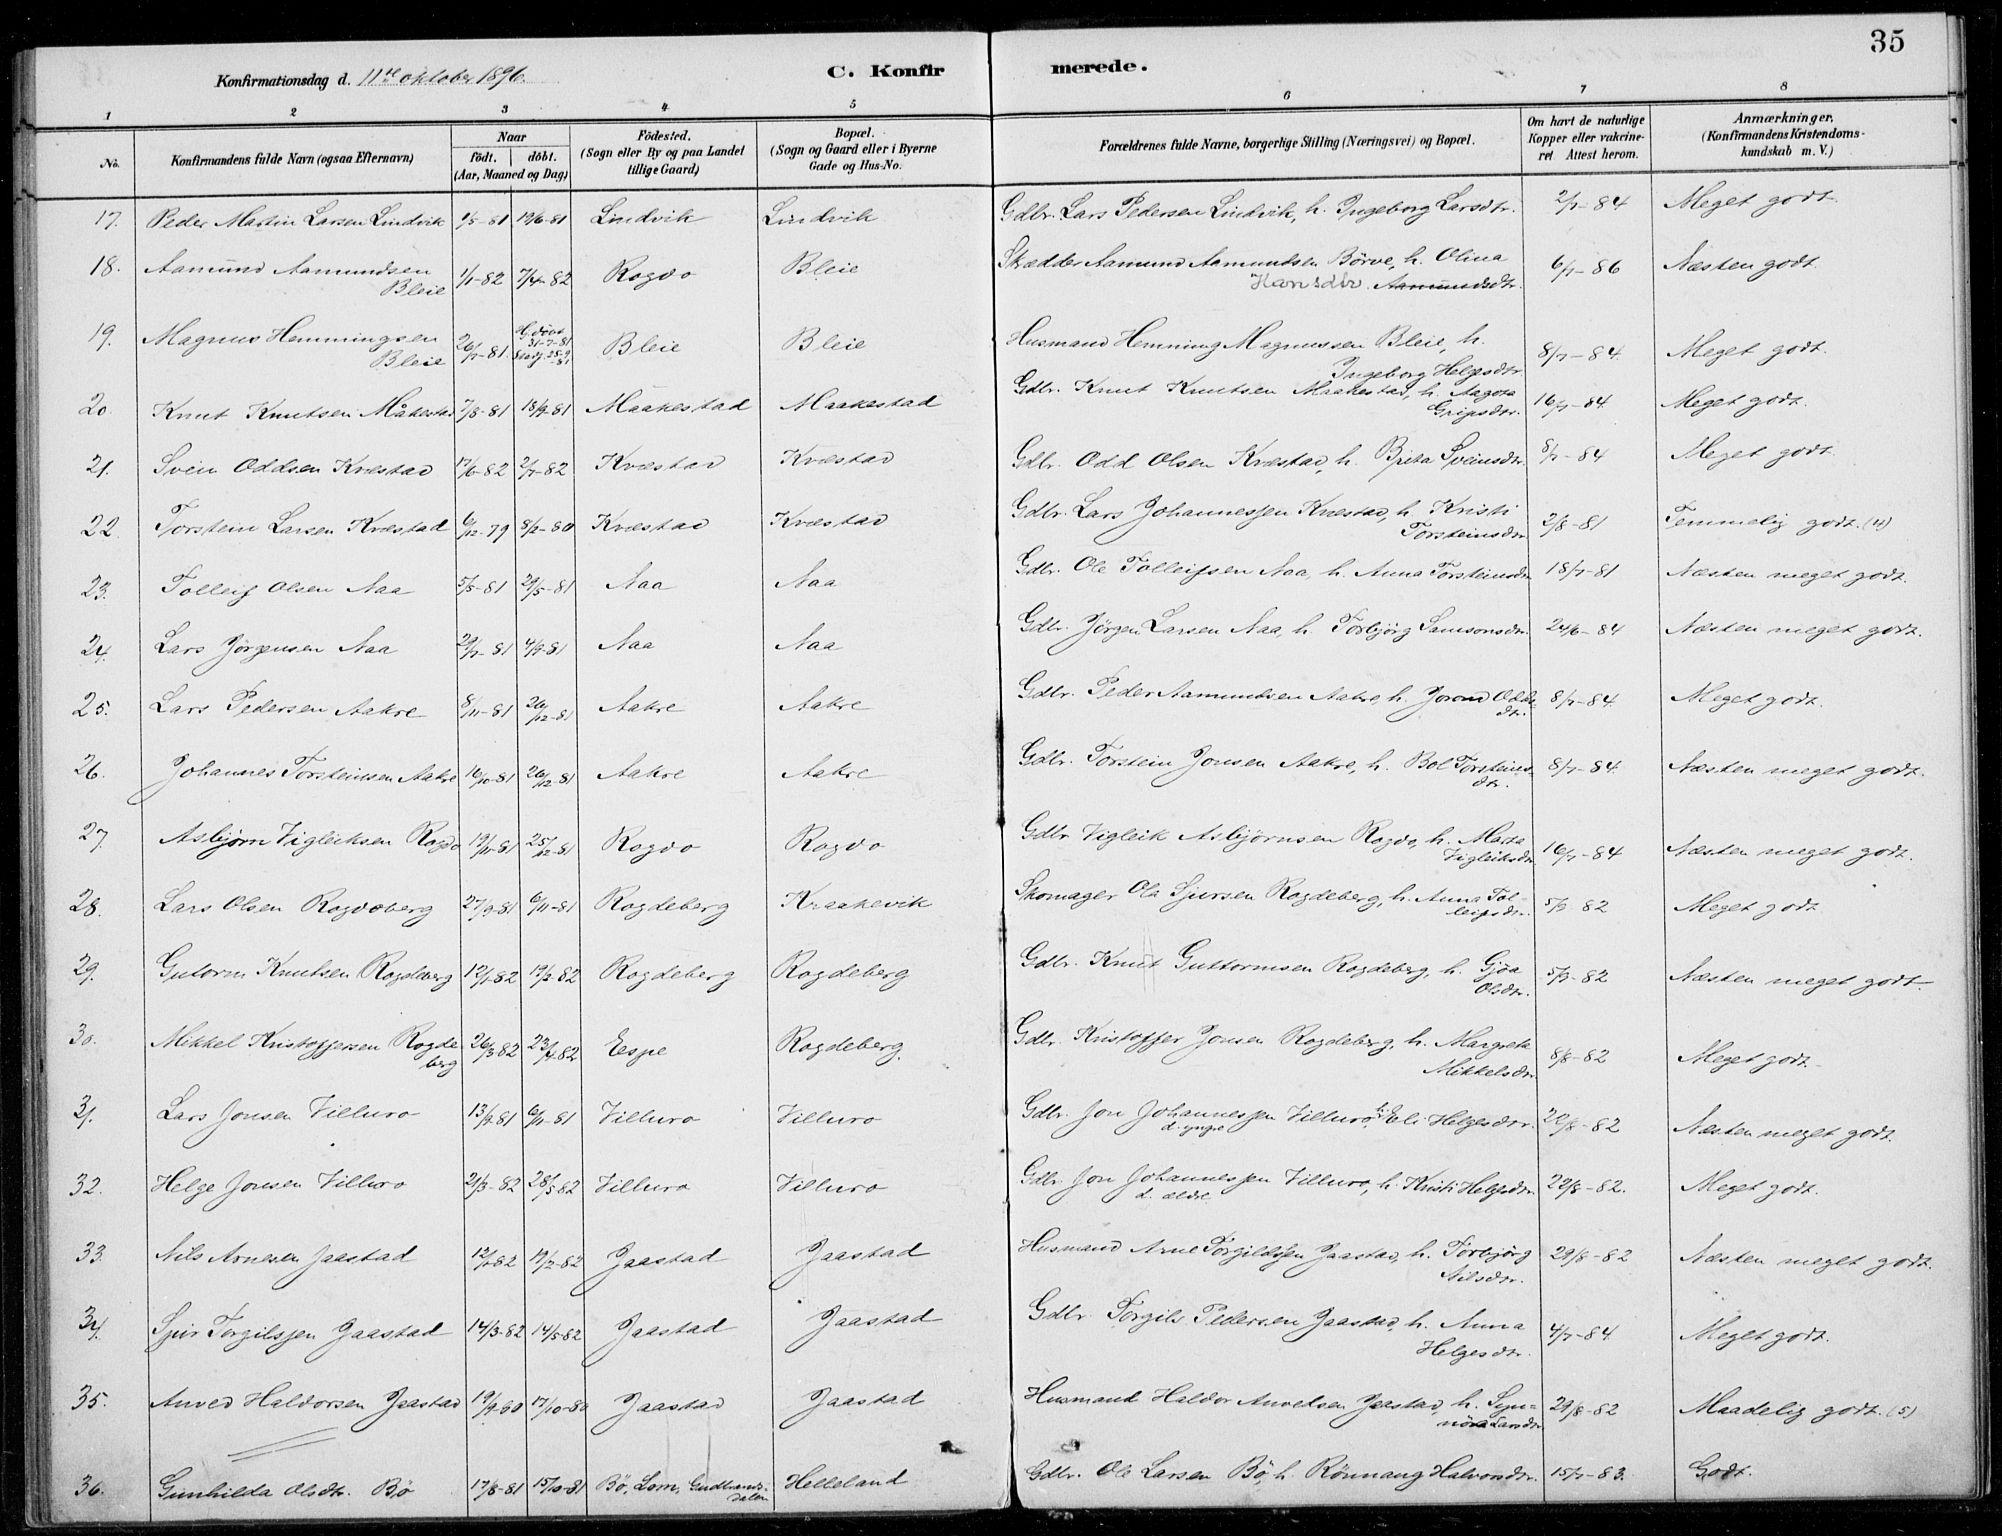 35
Konfirmationsdag d. 11te oktober 1896.
C. Konfirmerede.
1 2 3 4 5 6 7 8
No. Konfirmandens fulde Navn (ogsaa Efternavn) Naar født. døbt. (Aar, Maaned og Dag) Födested. (Sogn eller By og paa Landet tillige Gaard) Bopæl. (Sogn og Gaard eller i Byerne Gade og Hus-No. Forældrenes fulde Navne, borgerlige Stilling (Næringsvei) og Bopæl. Om havt de naturlige Kopper eller vakcineret Attest herom. Anmærkninger. (Konfirmandens Kristendomskundskab m. V.)
17. Peder Martin Larsen Lindvik 1/5-81 19/6-81 Lindvik Lindvik Gdbr. Lars Pedersen Lindvik, h. Ingeborg Larsdtr. 2/7-84 Meget godt.
18. Aamund Aamundsen Bleie 1/1-82 7/4-82 Ragdo Bleie Skrædder Aamund Aamundsen Börve, h. Olina Hansdtr. Aamundsdtr. 6/7-86 Næsten godt.
19. Magnus Hemmingsen Bleie 26/7-81. Hj. döbt 31-7-81 Stadf. 25-9 81 Bleie Bleie Husmand Hemming Magnussen Bleie, h. Ingeborg Helgesdtr. 8/7-84. Meget godt.
20. Knut Knutsen Måkestad 7/8-81 18/9-81 Maakestad Maakestad Gdbr. Knut Knutsen Maakestad, h. Aagota Gripsdtr. 16/7-84. Meget godt.
21. Svein Oddsen Kvæstad 17/6-82 2/7-82 Kvæstad Kvæstad Gdbr. Odd Olsen Kvæstad, h. Brita Sveinsdtr. 8/7-84 Meget godt.
22. Torstein Larsen Kvæstad 6/12-79 8/2-80 Kvæstad Kvæstad Gdbr. Lars Johannessen Kvæstad, h. Kristi Torsteinsdtr. 2/8-81 Temmelig godt. (4)
23. Tolleif Olsen Naa 5/5-81 29/5-81 Naa Naa Gdbr. Ole Tolleifsen Naa, h. Anna Torsteinsdtr. 18/7-81 Næsten meget godt.
24. Lars Jörgensen Naa 29/7-81 4/9-81 Naa Naa Gdbr. Jörgen Larsen Naa, h. Torbjörg Samsonsdtr. 24/6-84 Næsten meget godt.
25. Lars Pedersen Aakre 8/11-81 26/12-81 Aakre Aakre Gdbr. Peder Aamundsen Aakre, h. Jorand Oddsdtr. 8/7-84. Meget godt.
26. Johannes Torsteinsen Aakre 16/10-81 26/12-81 Aakre Aakre Gdbr. Torstein Jonsen Aakre, h. Bol Torsteinsdtr. 8/7-84. Næsten meget godt.
27. Asbjörn Vigleiksen Ragdo 19/11-81 25/12-81 Ragdo Ragdo Gdbr Vigleik Asbjörnsen Ragdo, h. Marta Vigleiksdtr. 16/7-84 Næsten meget godt.
28. Lars Olsen Ragdeberg 27/9-81 6/11-81 Ragdeberg Kraakevik Skomager Ole Sjursen Ragdeberg, h. Anna Tolleifsdtr. 5/9-82 Meget godt.
29. Gutorm Knutsen Ragdeberg 12/1-82 19/3-82 Ragdeberg Ragdeberg Gdbr. Knut Guttormsen Ragdeberg, h. Gjöa Olsdtr. 5/9-82 Næsten meget godt.
30. Mikkel Kristoffersen Ragdeberg 26/3-82 23/4-82 Espe Ragdeberg. Gdbr. Kristoffer Jonsen Ragdeberg, h. Margreta Mikkelsdtr. 8/8-82 Meget godt.
31. Lars Jonsen Villuro 13/9-81 6/11-81 Villuro Villuro Gdbr. Jon Johannessen d. yngre Villuro, h. Eli Helgesdtr. 22/8-82 Næsten meget godt.
32. Helge Jonsen Villuro 21/3-82 28/5-82 Villuro Villuro Gdbr. Jon Johannessen d. ældre Villuro, h. Kristi Helgesdtr. 22/8-82. Meget godt.
33. Nils Arnesen Jaastad 12/1-82 19/2-82 Jaastad Jaastad Husmand Arne Torgilssen Jaastad, h. Torbjörg Nilsdtr. 29/8-82 Næsten meget godt.
34. Sjur Torgilssen Jaastad 14/3-82 14/5-82 Jaastad Jaastad Gdbr. Torgils Pedersen Jaastad, h. Anna Helgesdtr. 4/7-84. Meget godt.
35. Anved Haldorsen Jaastad 19/9-80 17/10-80 Jaastad Jaastad Husmand Haldor Anvedsen Jaastad, h. Synnöva Larsdtr. 29/8-82 Maadelig godt. (5)
36. Gunhilda Olsdtr. Bö 17/8-81 15/10-81 Bö, Lom, Gudbrandsdalen Helleland Gdbr. Ole Larsen Bö, h. Rönnaug Halvorsdtr. 15/7-83. Godt.